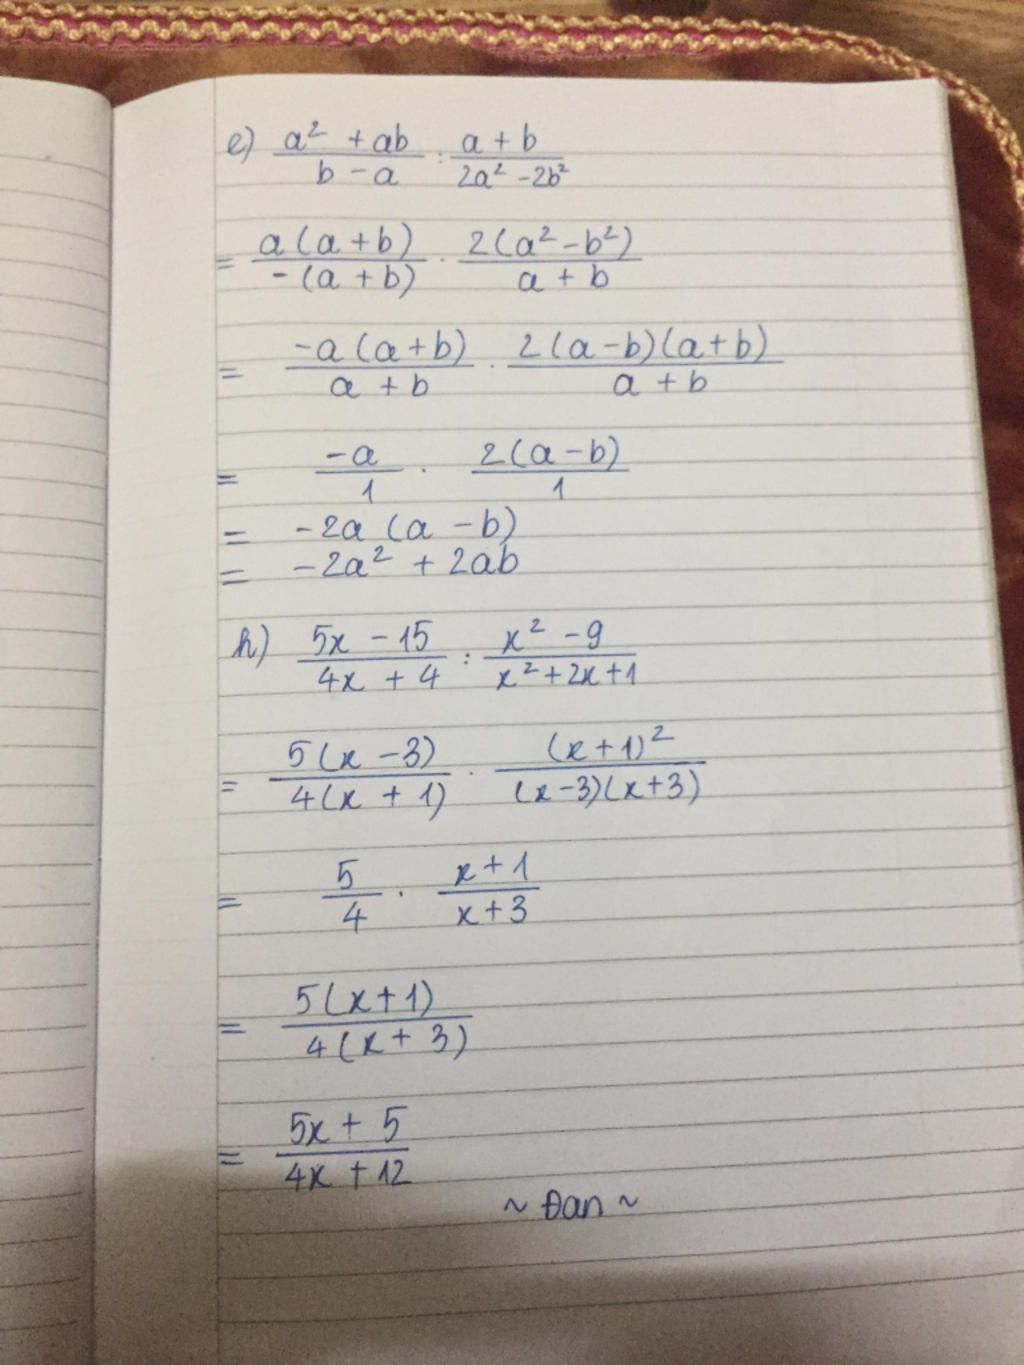 e) (a² + ab)/(b - a) : (a + b)/(2a² - 2b²)
= a(a + b)/-(a + b) . 2(a² - b²)/(a + b)
= -a(a + b)/(a + b) . 2(a - b)(a + b)/(a + b)
= -a/1 . 2(a - b)/1
= -2a (a - b)
= -2a² + 2ab
h) (5x - 15)/(4x + 4) : (x² - 9)/(x² + 2x + 1)
= 5(x - 3)/4(x + 1) . (x + 1)²/(x - 3)(x + 3)
= 5/4 . (x + 1)/(x + 3)
= 5(x + 1)/4(x + 3)
= (5x + 5)/(4x + 12)
~ Đan ~